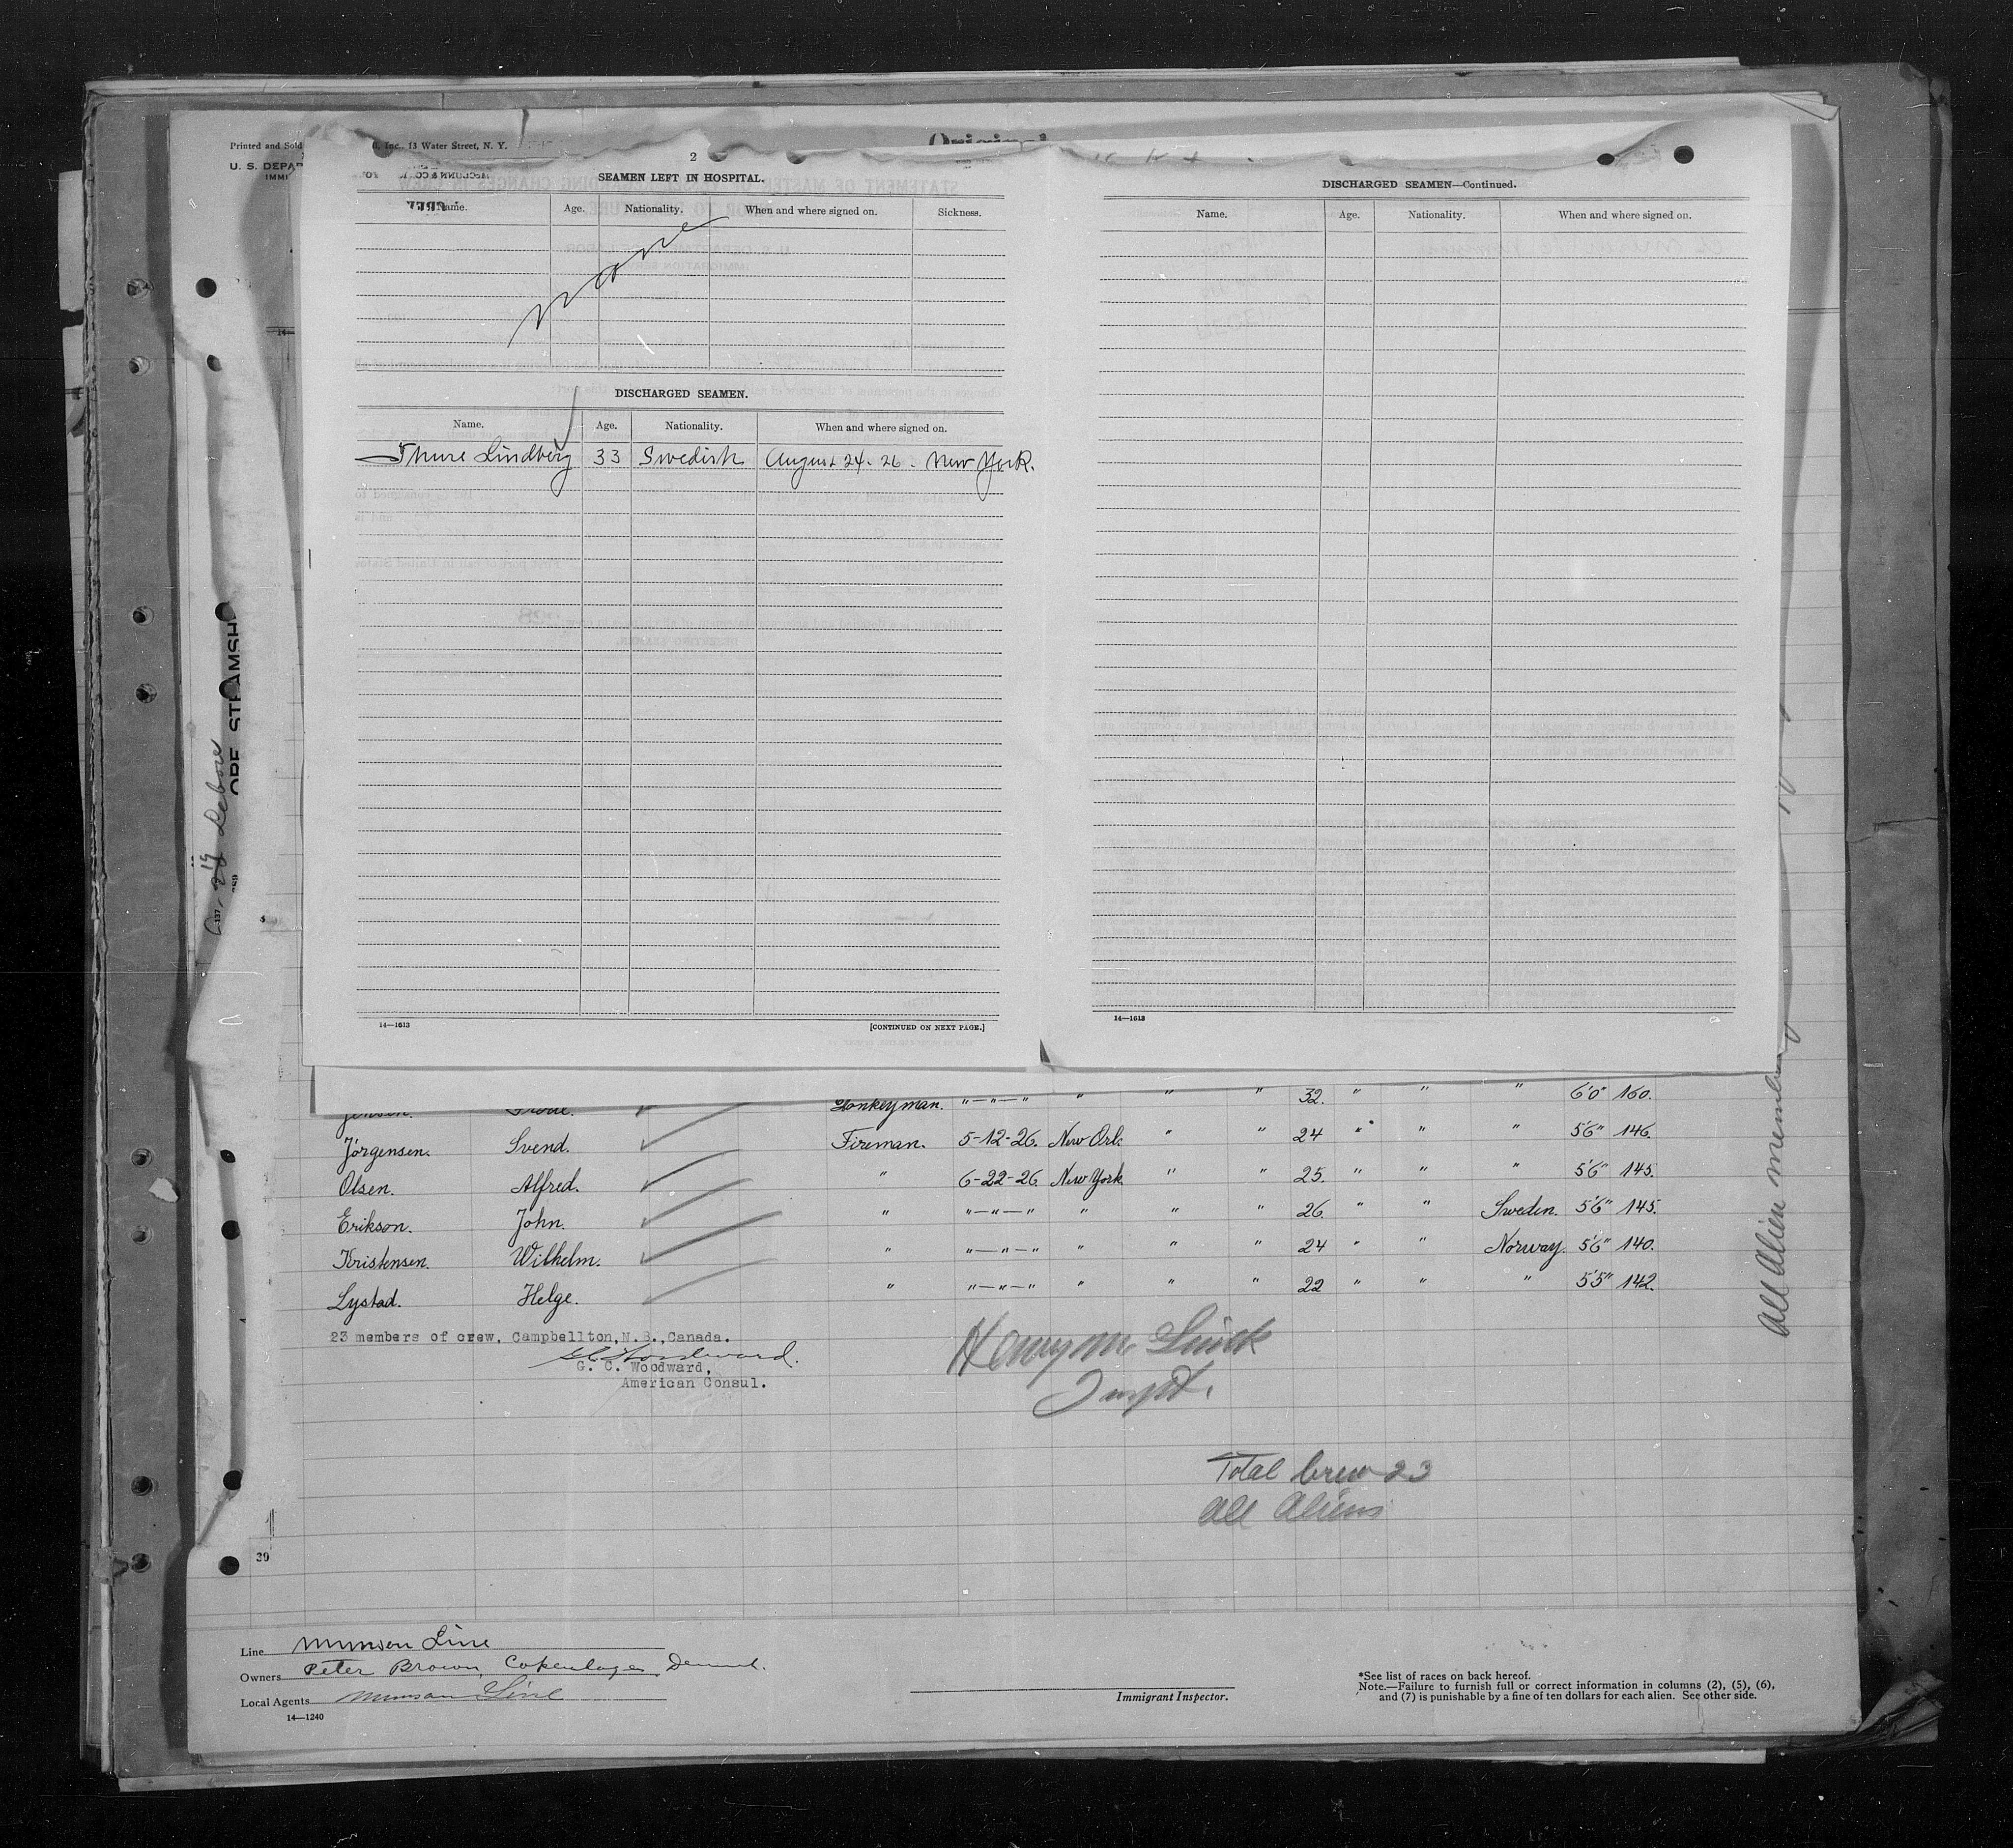 Original
Printed and Sold
Inc., 13 Water Street, N. Y.
U. S. DEPA
IMMI
2
SEAMEN LEFT IN HOSPITAL.
Name. Age. Nationality. When and where signed on. Sickness.
none
DISCHARGED SEAMEN.
Name. Age. Nationality. When and where signed on.
Thure Lindberg 33 Swedish August 24. 26. New York.
14—1613 [CONTINUED ON NEXT PAGE.]
DISCHARGED SEAMEN—Continued.
Name. Age. Nationality. When and where signed on.
14—1613
Jensen. Donkeyman. "—"—" " " " 32. " " " 6'0" 160.
Jörgensen. Svend. Fireman. 5-12-26. New Orl. " " 24 " " " 5'6" 146.
Olsen. Alfred. " 6-22-26. New York. " " 25. " " " 5'6" 145.
Erikson. John. " "—"—" " " " 26. " " Sweden. 5'6" 145.
Kristensen. Wilhelm. " "—"—" " " " 24 " " Norway. 5'6" 140.
Lystad. Helge. " "—"—" " " " 22 " " " 5'5" 142.
23 members of crew, Campbellton, N.B., Canada.
G. C. Woodward,
American Consul.
Henry M.
Inspt.
Total Crew 23
All Aliens
39
All Alien
Line Munson Line
Owners Peter Brown, Copenhagen Denmark.
Local Agents Munson Line
14—1240
Immigrant Inspector.
*See list of races on back hereof.
Note.—Failure to furnish full or correct information in columns (2), (5), (6),
and (7) is punishable by a fine of ten dollars for each alien. See other side.